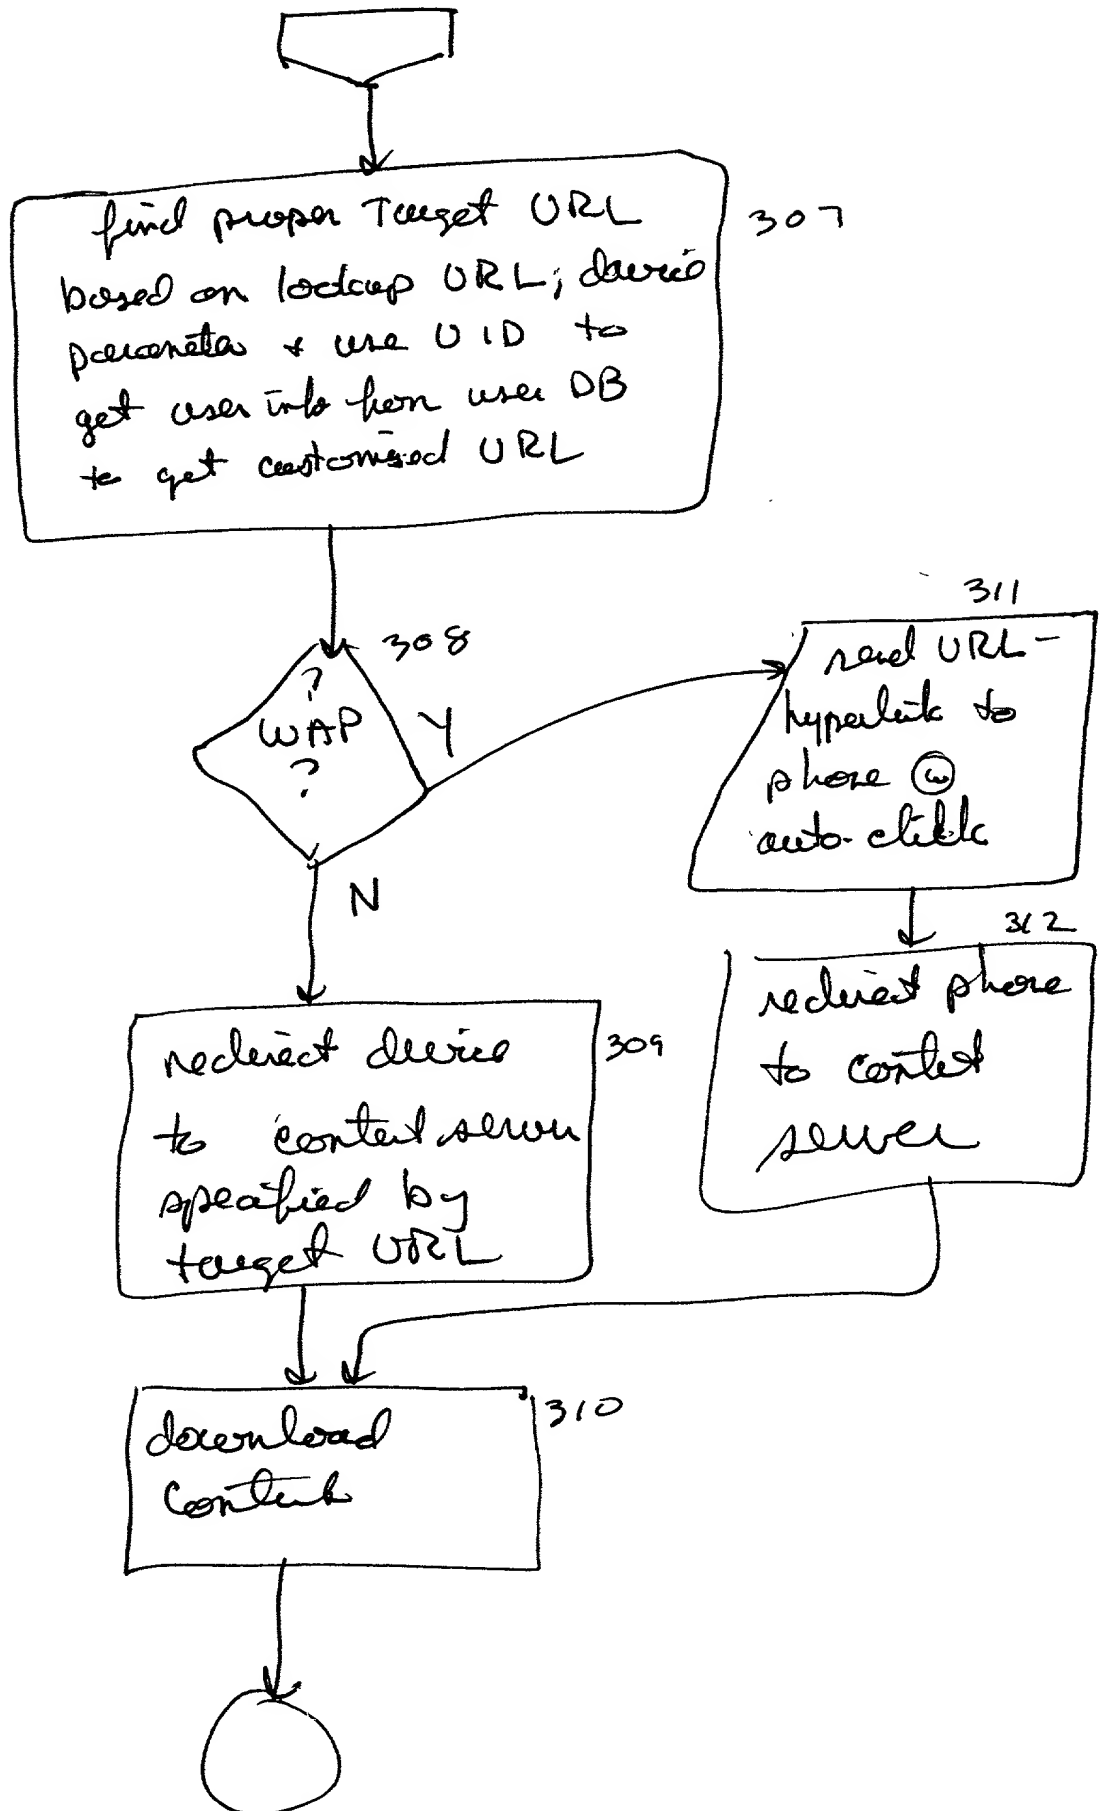 find proper Target URL
307
based on lookup URL; device
parameter + use UID to
get user info from user DB
to get customized URL
308
?
WAP
?
Y
N
311
send URL-
hyperlink to
phone ⓦ
auto-click
312
redirect phone
to content
server
redirect device
309
to content server
specified by
target URL
download
310
content